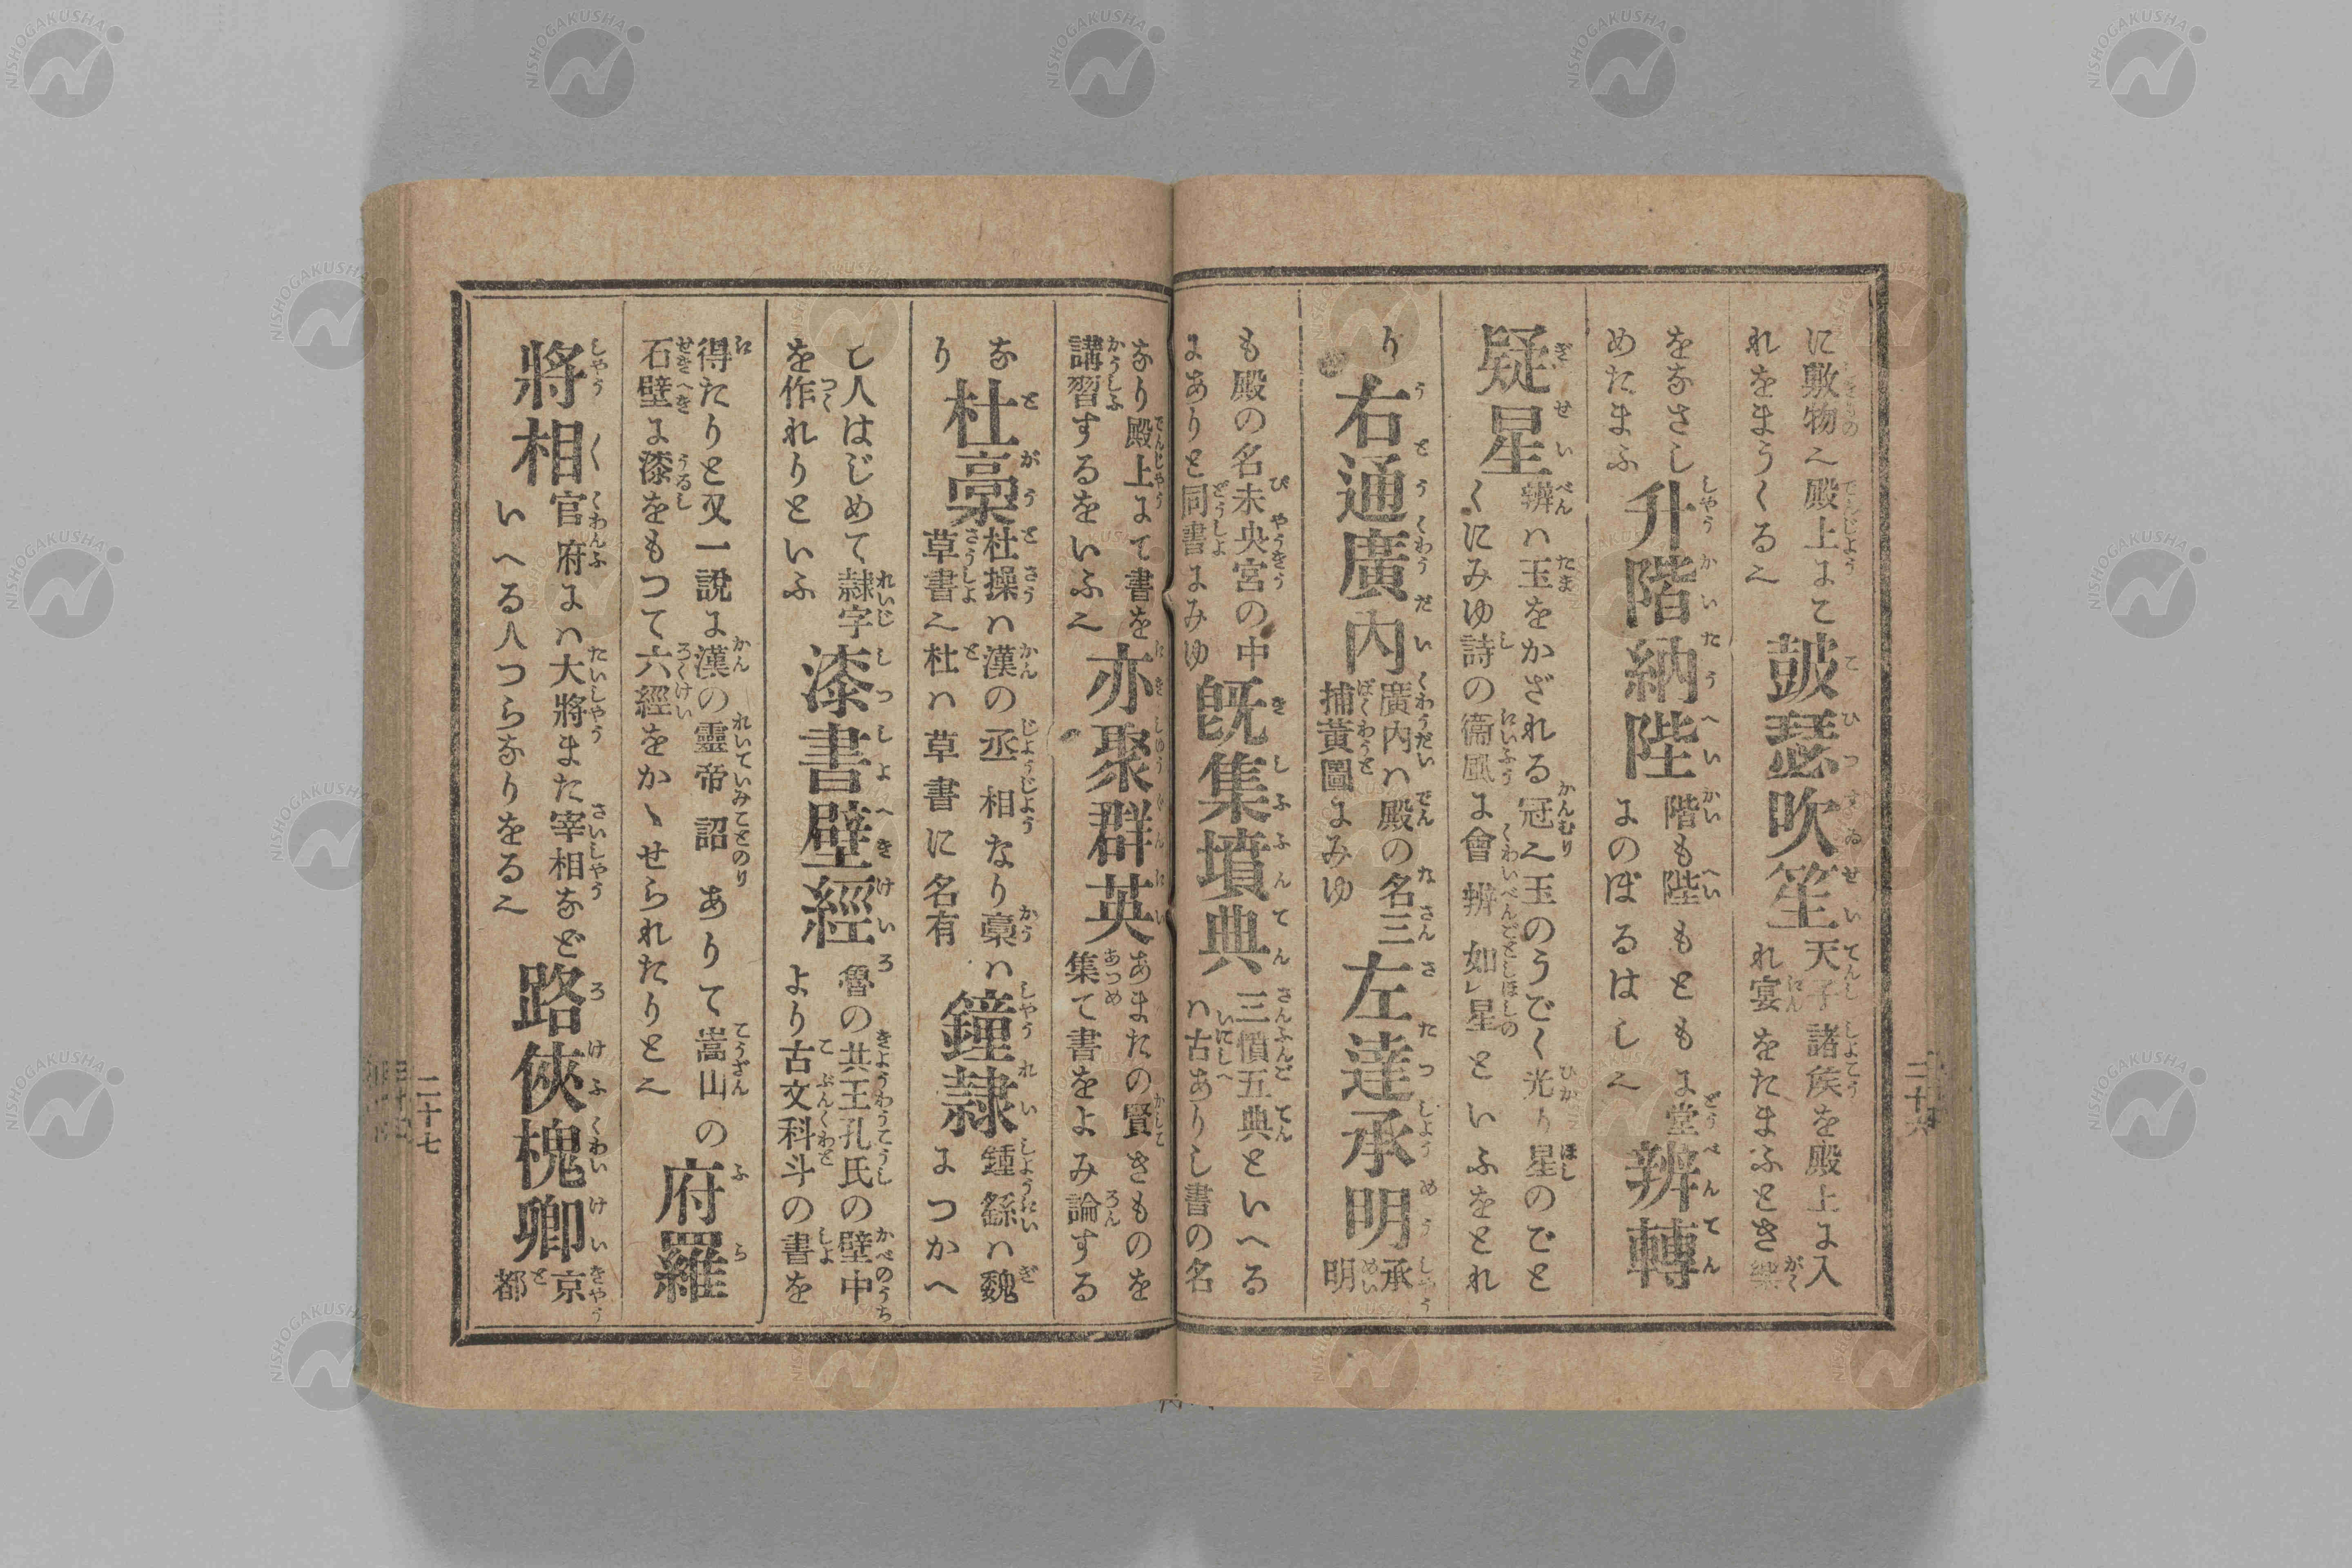 に敷物〻殿上まて
れをまうくる〻
皷瑟吹笙
天子諸侯を殿上ま入
れ宴をたまふとき樂
をなさし
めたまふ
升階納陛
階も陛もともま堂
まのぼるはし〻
辨轉
疑星
辨ハ玉をかざれる冠〻玉のうごく光り星のごと
くにみゆ詩の衞風ま會辨如レ星といふをとれ
り
右通廣内
廣内ハ殿の名三
捕黃圖まみゆ
左達承明
承
明
も殿の名未央宮の中
まありと同書まみゆ
既集墳典
三憤五典といへる
ハ古ありし書の名
なり殿上まて書を
講習するをいふ〻
亦聚群英
あまたの賢きものを
集て書をよみ論する
な
り
杜稾
杜操ハ漢の丞相なり稾ハ
草書〻杜ハ草書に名有
鐘隷
鍾繇ハ魏
まつかへ
し人はじめて隷字
を作れりといふ
漆書壁經
魯の共王孔氏の壁中
より古文科斗の書を
得たりと又一說ま漢の靈帝詔ありて嵩山の
石壁ま漆をもつて六經をかゝせられたりと〻
府羅
將相
官府まハ大將また宰相など
いへる人つらなりをる〻
路俠槐卿
京
都
二十七